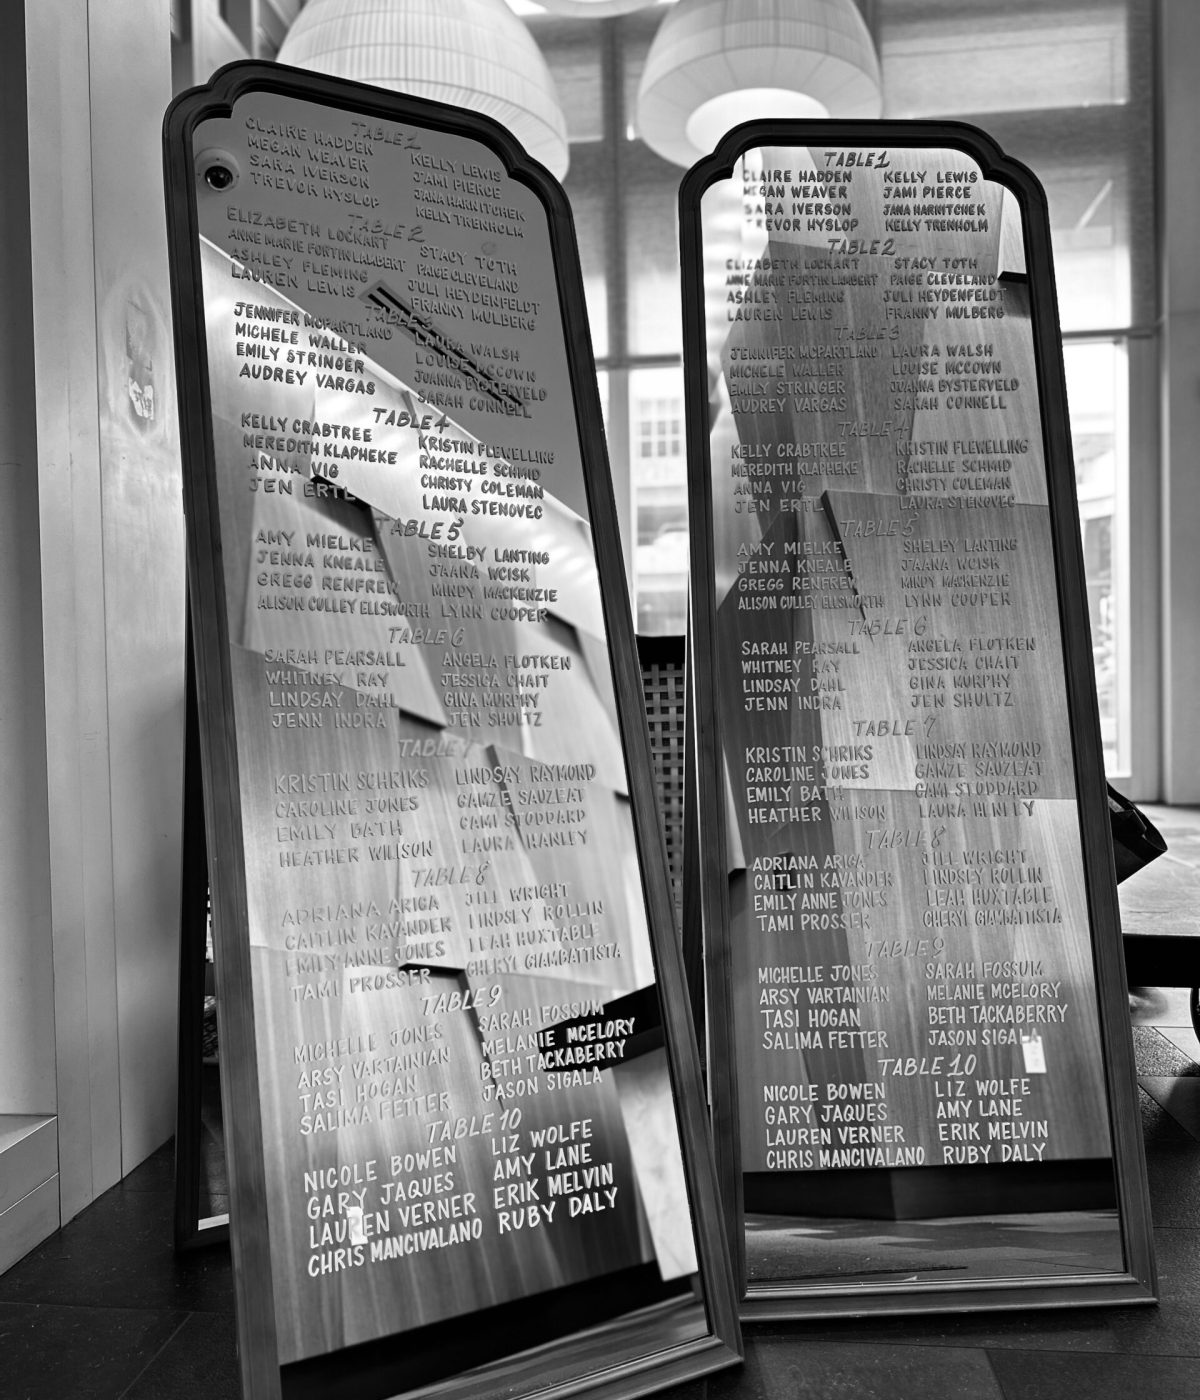 TABLE 1
CLAIRE HADDEN KELLY LEWIS
MEGAN WEAVER JAMI PIERCE
SARA IVERSON JANA HARNITCHEK
TREVOR HYSLOP KELLY TRENHOLM
TABLE 2
ELIZABETH LOCKART STACY TOTH
ANNE MARIE FORTIN LAMBERT PAIGE CLEVELAND
ASHLEY FLEMING JULI HEYDENFELDT
LAUREN LEWIS FRANNY MULBERG
TABLE 3
JENNIFER MCPARTLAND LAURA WALSH
MICHELE WALLER LOUISE MCCOWN
EMILY STRINGER JOANNA BYSTERVELD
AUDREY VARGAS SARAH CONNELL
TABLE 4
KELLY CRABTREE KRISTIN FLEWELLING
MEREDITH KLAPHEKE RACHELLE SCHMID
ANNA VIG CHRISTY COLEMAN
JEN ERTL LAURA STENOVEC
TABLE 5
AMY MIELKE SHELBY LANTING
JENNA KNEALE JAANA WCISK
GREGG RENFREW MINDY MACKENZIE
ALISON CULLEY ELLSWORTH LYNN COOPER
TABLE 6
SARAH PEARSALL ANGELA FLOTKEN
WHITNEY RAY JESSICA CHAIT
LINDSAY DAHL GINA MURPHY
JENN INDRA JEN SHULTZ
TABLE 7
KRISTIN SCHRIKS LINDSAY RAYMOND
CAROLINE JONES GAMZE SAUZEAT
EMILY BATH CAMI STODDARD
HEATHER WILISON LAURA HANLEY
TABLE 8
ADRIANA ARIGA JILL WRIGHT
CAITLIN KAVANDER LINDSEY ROLLIN
EMILY ANNE JONES LEAH HUXTABLE
TAMI PROSSER CHERYL GIAMBATTISTA
TABLE 9
MICHELLE JONES SARAH FOSSUM
ARSY VARTAINIAN MELANIE MCELORY
TASI HOGAN BETH TACKABERRY
SALIMA FETTER JASON SIGALA
TABLE 10
NICOLE BOWEN LIZ WOLFE
GARY JAQUES AMY LANE
LAUREN VERNER ERIK MELVIN
CHRIS MANCIVALANO RUBY DALY
TABLE 1
CLAIRE HADDEN KELLY LEWIS
MEGAN WEAVER JAMI PIERCE
SARA IVERSON JANA HARNITCHEK
TREVOR HYSLOP KELLY TRENHOLM
TABLE 2
ELIZABETH LOCKART STACY TOTH
ANNE MARIE FORTIN LAMBERT PAIGE CLEVELAND
ASHLEY FLEMING JULI HEYDENFELDT
LAUREN LEWIS FRANNY MULBERG
TABLE 3
JENNIFER MCPARTLAND LAURA WALSH
MICHELE WALLER LOUISE MCCOWN
EMILY STRINGER JOANNA BYSTERVELD
AUDREY VARGAS SARAH CONNELL
TABLE 4
KELLY CRABTREE KRISTIN FLEWELLING
MEREDITH KLAPHEKE RACHELLE SCHMID
ANNA VIG CHRISTY COLEMAN
JEN ERTL LAURA STENOVEC
TABLE 5
AMY MIELKE SHELBY LANTING
JENNA KNEALE JAANA WCISK
GREGG RENFREW MINDY MACKENZIE
ALISON CULLEY ELLSWORTH LYNN COOPER
TABLE 6
SARAH PEARSALL ANGELA FLOTKEN
WHITNEY RAY JESSICA CHAIT
LINDSAY DAHL GINA MURPHY
JENN INDRA JEN SHULTZ
TABLE 7
KRISTIN SCHRIKS LINDSAY RAYMOND
CAROLINE JONES GAMZE SAUZEAT
EMILY BATH CAMI STODDARD
HEATHER WILISON LAURA HENLEY
TABLE 8
ADRIANA ARIGA JILL WRIGHT
CAITLIN KAVANDER LINDSEY ROLLIN
EMILY ANNE JONES LEAH HUXTABLE
TAMI PROSSER CHERYL GIAMBATTISTA
TABLE 9
MICHELLE JONES SARAH FOSSUM
ARSY VARTAINIAN MELANIE MCELORY
TASI HOGAN BETH TACKABERRY
SALIMA FETTER JASON SIGALA
TABLE 10
NICOLE BOWEN LIZ WOLFE
GARY JAQUES AMY LANE
LAUREN VERNER ERIK MELVIN
CHRIS MANCIVALANO RUBY DALY